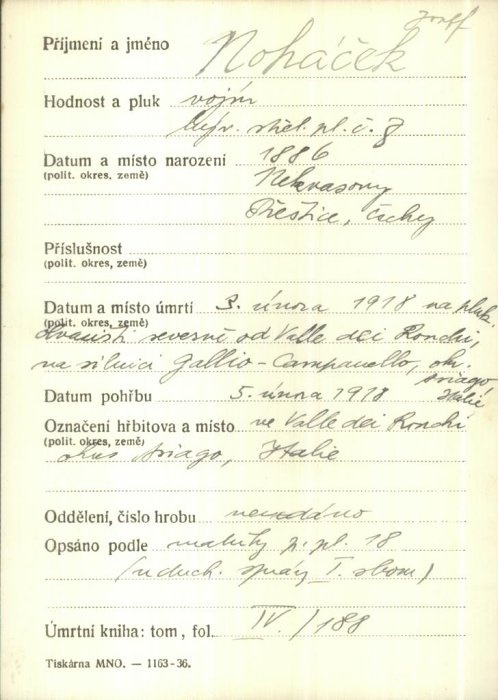 Josef
Příjmení a jméno Noháček
Hodnost a pluk vojín
střel. pl. č. 8
Datum a místo narození 1886
(polit. okres, země) Nekvasovy
Přeštice, Čechy
Příslušnost
(polit. okres, země)
Datum a místo úmrtí 3. února 1918 na pluk.
(polit. okres, země) severně od Valle dei Ronchi,
na silnici Gallio-Campanello, okr.
Asiago,
Datum pohřbu 5. února 1918 Italie
Označení hřbitova a místo ve Valle dei Ronchi
(polit. okres, země)
okres Asiago, Italie
Oddělení, číslo hrobu neudáno
Opsáno podle matriky p. pl. 18
(u duch. správy I. sboru)
Úmrtní kniha: tom, fol. IV. / 188
Tiskárna MNO. — 1163-36.